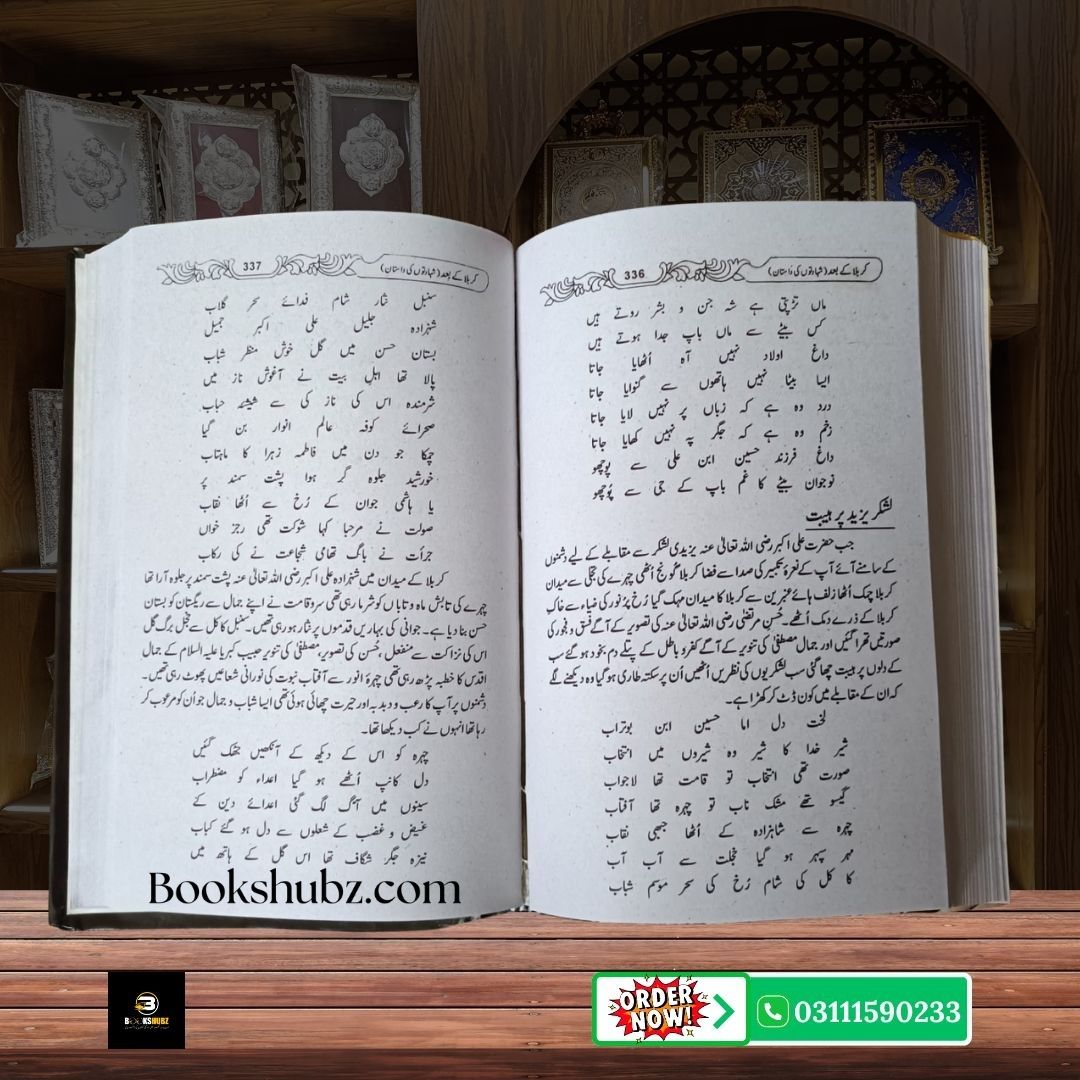 کربلا کے بعد (شہادتوں کی داستان)
336
ماں تڑپتی ہے شہ جن و بشر روتے ہیں
کس بیٹے سے ماں باپ جدا ہوتے ہیں
داغ اولاد نہیں آہ اُٹھایا جاتا
ایسا بیٹا نہیں ہاتھوں سے گنوایا جاتا
درد وہ ہے کہ زباں پر نہیں لایا جاتا
زخم وہ ہے کہ جگر پہ نہیں کھایا جاتا
داغ فرزند حسین ابن علی سے پوچھو
نوجوان بیٹے کا غم باپ کے جی سے پُوچھو
لشکر یزید پر ہیبت
جب حضرت علی اکبر رضی اللہ تعالیٰ عنہ یزیدی لشکر سے مقابلے کے لیے دشمنوں
کے سامنے آئے آپ کے نعرۂ تکبیر کی صدا سے فضا کربلا گونج اُٹھی چہرے کی تجلی سے میدان
کربلا چمک اُٹھا زلف ہائے عنبرین سے کربلا کا میدان مہک گیا رُخ پرُنور کی ضیاء سے خاکِ
کربلا کے ذرے دمک اُٹھے۔ حُسنِ مرتضٰی رضی اللہ تعالیٰ عنہ کی تصویر کے آگے فسق و فجور کی
صورتیں تھرا گئیں اور جمال مصطفیٰ کی تنویر کے آگے کفر و باطل کے پتلے دم بخود ہو گئے سب
کے دلوں پر ہیبت چھا گئی سب لشکریوں کی نظریں اُٹھیں اُن پر سکتہ طاری ہو گیا وہ دیکھنے لگے
کہ ان کے مقابلے میں کون ڈٹ کر کھڑا ہے۔
لخت دل اما حسین ابن بوتراب
شیر خدا کا شیر وہ شیروں میں انتخاب
صورت تھی انتخاب تو قامت تھا لاجواب
گیسو تھے مشک ناب تو چہرہ تھا آفتاب
چہرہ سے شاہزادہ کے اُٹھا جبھی نقاب
مہر سپہر ہو گیا خجلت سے آب آب
کا کل کی شام رُخ کی سحر موسم شباب
کربلا کے بعد (شہادتوں کی داستان)
337
سنبل نثار شام فدائے سحر گلاب
شہزادہ جلیل علی اکبر جمیل
بستان حسن میں گل خوش منظر شباب
پالا تھا اہلِ بیت نے آغوش ناز میں
شرمندہ اس کی ناز کی سے شیشۂ حباب
صحرائے کوفہ عالم انوار بن گیا
چمکا جو دن میں فاطمہ زہرا کا ماہتاب
خورشید جلوہ گر ہوا پشت سمند پر
یا ہاشمی جوان کے رُخ سے اُٹھا نقاب
صولت نے مرحبا کہا شوکت تھی رجز خواں
جرأت نے باگ تھامی شجاعت نے کی رکاب
کربلا کے میدان میں شہزادہ علی اکبر رضی اللہ تعالیٰ عنہ پشت سمند پر جلوہ آرا تھا
چہرے کی تابش ماہ و تاباں کو شرما رہی تھی سرو قامت نے اپنے جمال سے ریگستان کو بستان
حسن بنا دیا ہے۔ جوانی کی بہاریں قدموں پر نثار ہو رہی تھیں۔ سنبل کا کل سے خجل برگ گل
اس کی نزاکت سے منفعل، حُسن کی تصویر، مصطفیٰ کی تنویر حبیب کبریا علیہ السلام کے جمال
اقدس کا خطبہ پڑھ رہی تھی چہرۂ انور سے آفتاب نبوت کی نورانی شعاعیں پھوٹ رہی تھیں۔
دشمنوں پر آپ کا رعب و دبدبہ اور حیرت چھائی ہوئی تھی ایسا شباب و جمال جو اُن کو مرعوب کر
رہا تھا انہوں نے کب دیکھا تھا۔
چہرہ کو اس کے دیکھ کے آنکھیں جھپک گئیں
دل کانپ اُٹھے ہو گیا اعداء کو مضطراب
سینوں میں آگ لگ گئی اعدائے دین کے
غیض و غضب کے شعلوں سے دل ہو گئے کباب
نیزہ جگر شگاف تھا اس گل کے ہاتھ میں
Bookshubz.com
BOOKSHUBZ
ORDER NOW!
03111590233